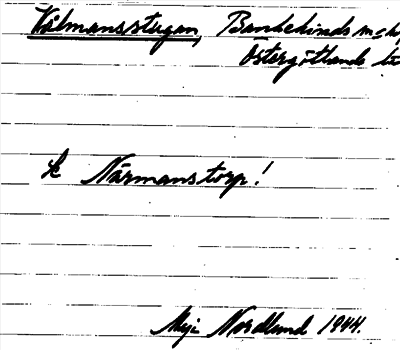 Vilmansstugan, Bankekinds sn
Östergötlands
Se Närmanstorp!
Maja Nordlund 1944.